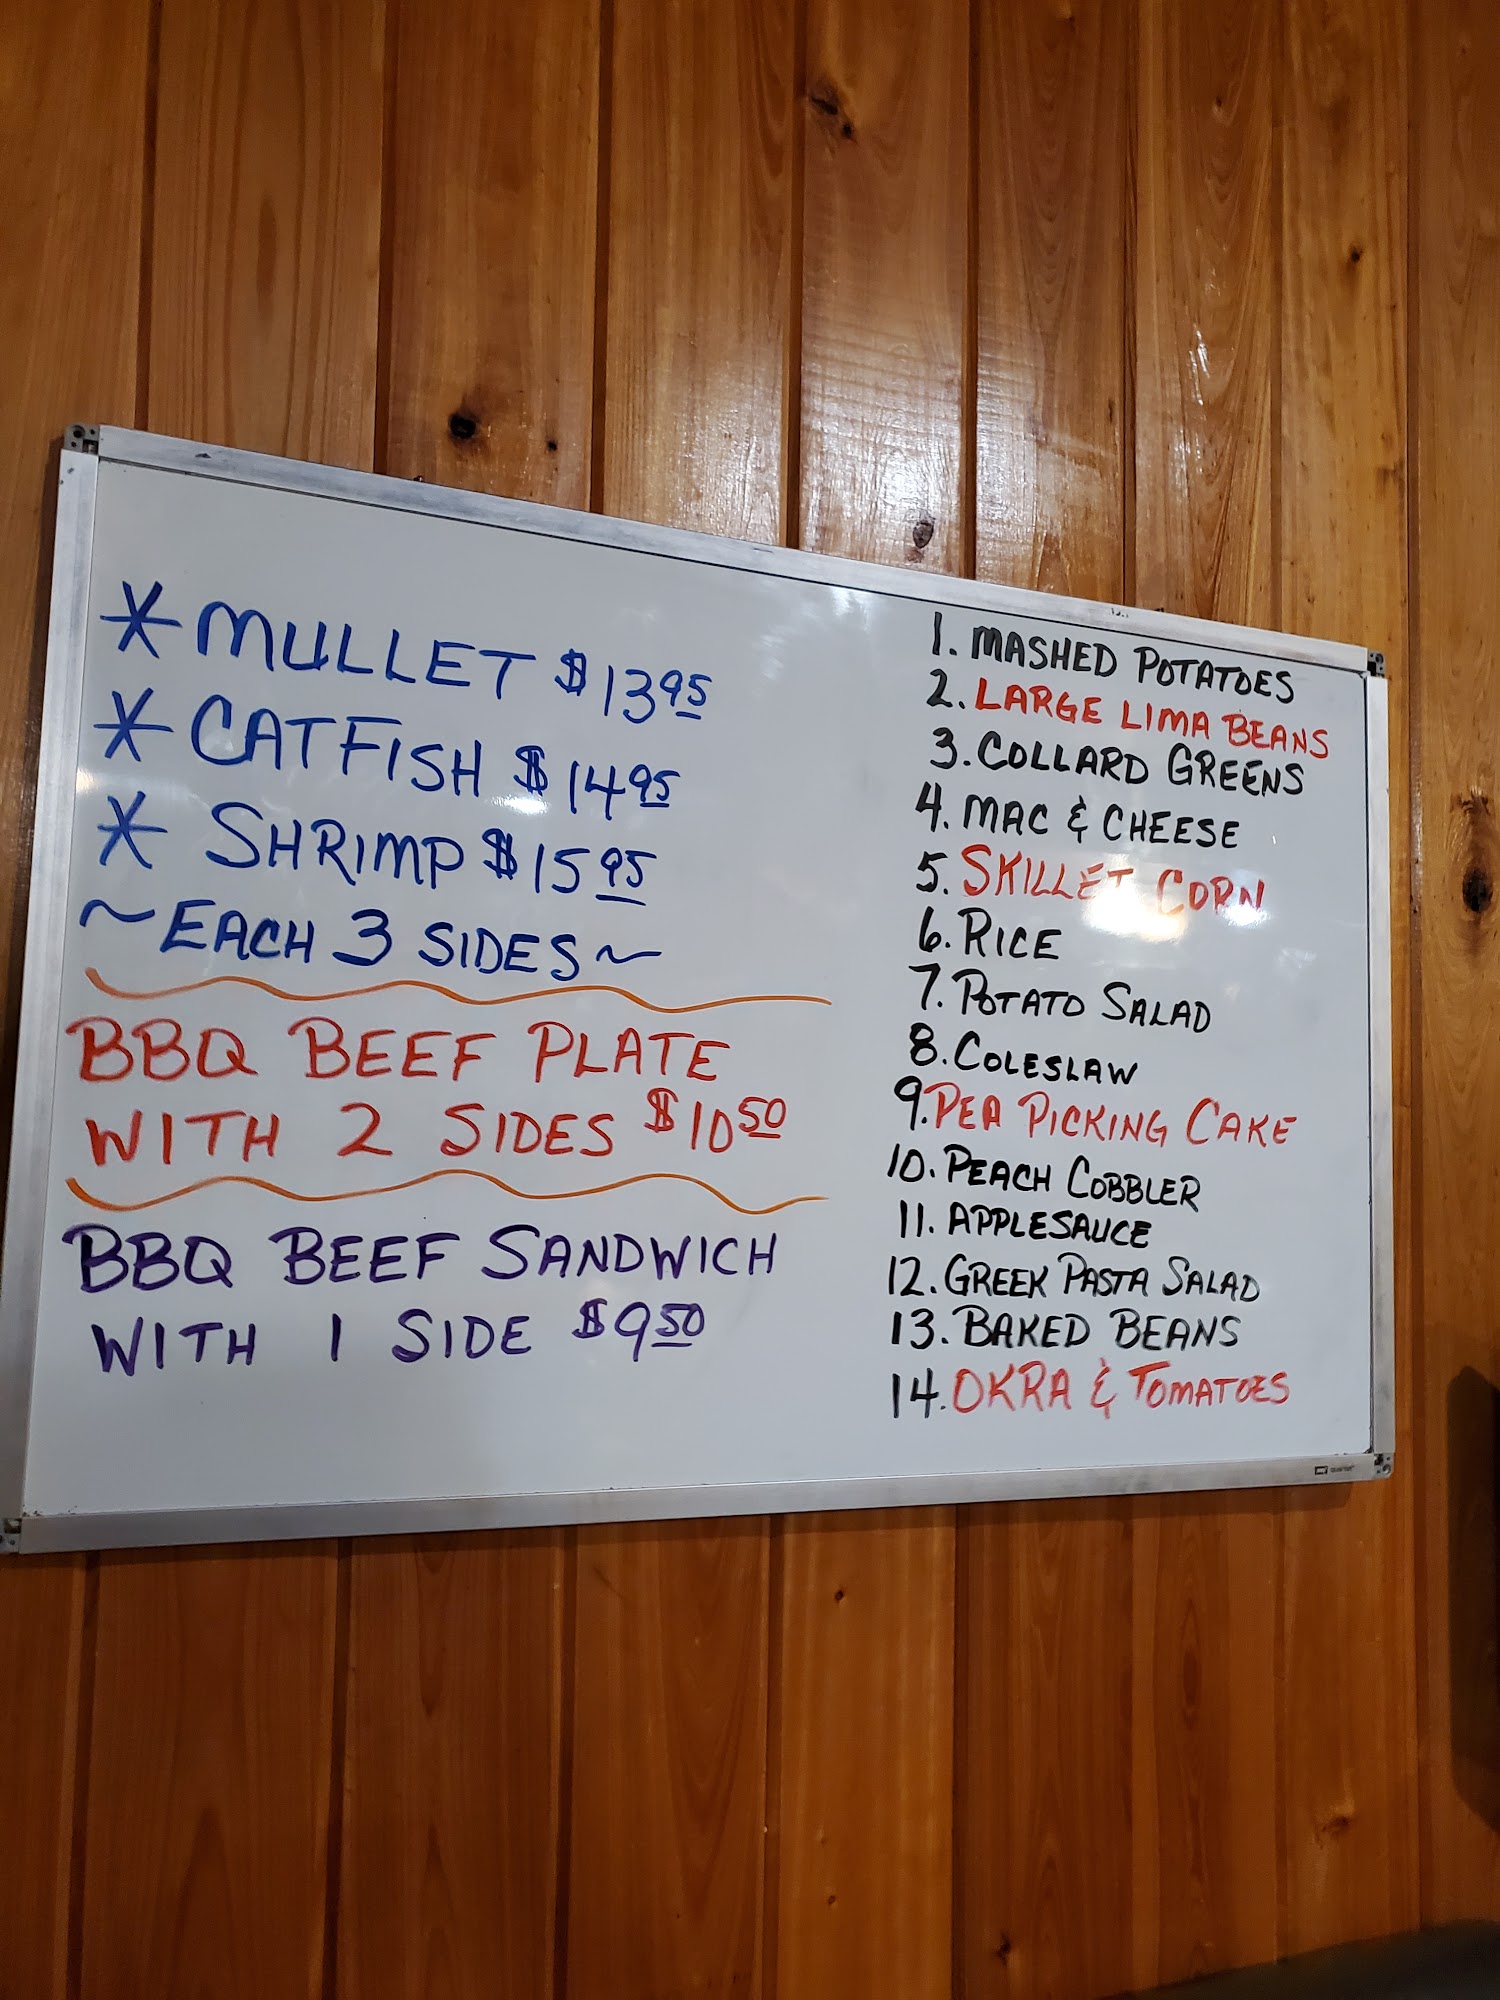 * MULLET $13.95
* CATFISH $14.95
* SHRIMP $15.95
~ EACH 3 SIDES ~
BBQ BEEF PLATE
WITH 2 SIDES $10.50
BBQ BEEF SANDWICH
WITH 1 SIDE $9.50
1. MASHED POTATOES
2. LARGE LIMA BEANS
3. COLLARD GREENS
4. MAC & CHEESE
5. SKILLET CORN
6. RICE
7. POTATO SALAD
8. COLESLAW
9. PEA PICKING CAKE
10. PEACH COBBLER
11. APPLESAUCE
12. GREEK PASTA SALAD
13. BAKED BEANS
14. OKRA & TOMATOES